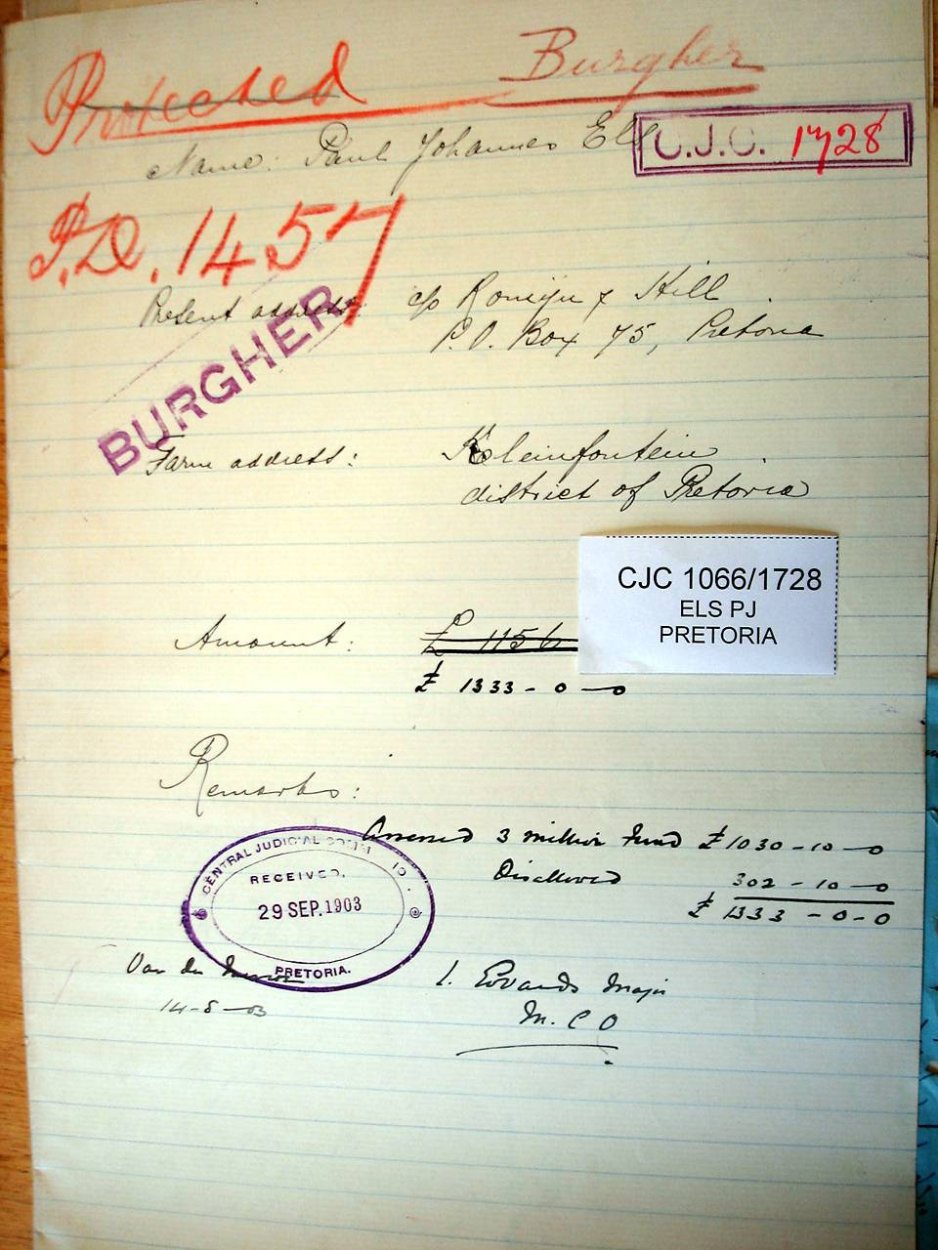 Protected Burgher
Name: Paul Johannes Els
C.J.C. 1728
P.D. 1457
Present address: c/o Romijn & Hill
P.O. Box 75, Pretoria
BURGHER
Farm address: Kleinfontein
district of Pretoria
CJC 1066/1728
ELS PJ
PRETORIA
Amount: £ 1156
£ 1333-0-0
Remarks:
Assessed 3 million Fund £1030-10-0
Disallowed 302-10-0
£ 1333-0-0
CENTRAL JUDICIAL
RECEIVED.
29 SEP. 1903
PRETORIA.
Van der
14-5-03
Major
M.C.O